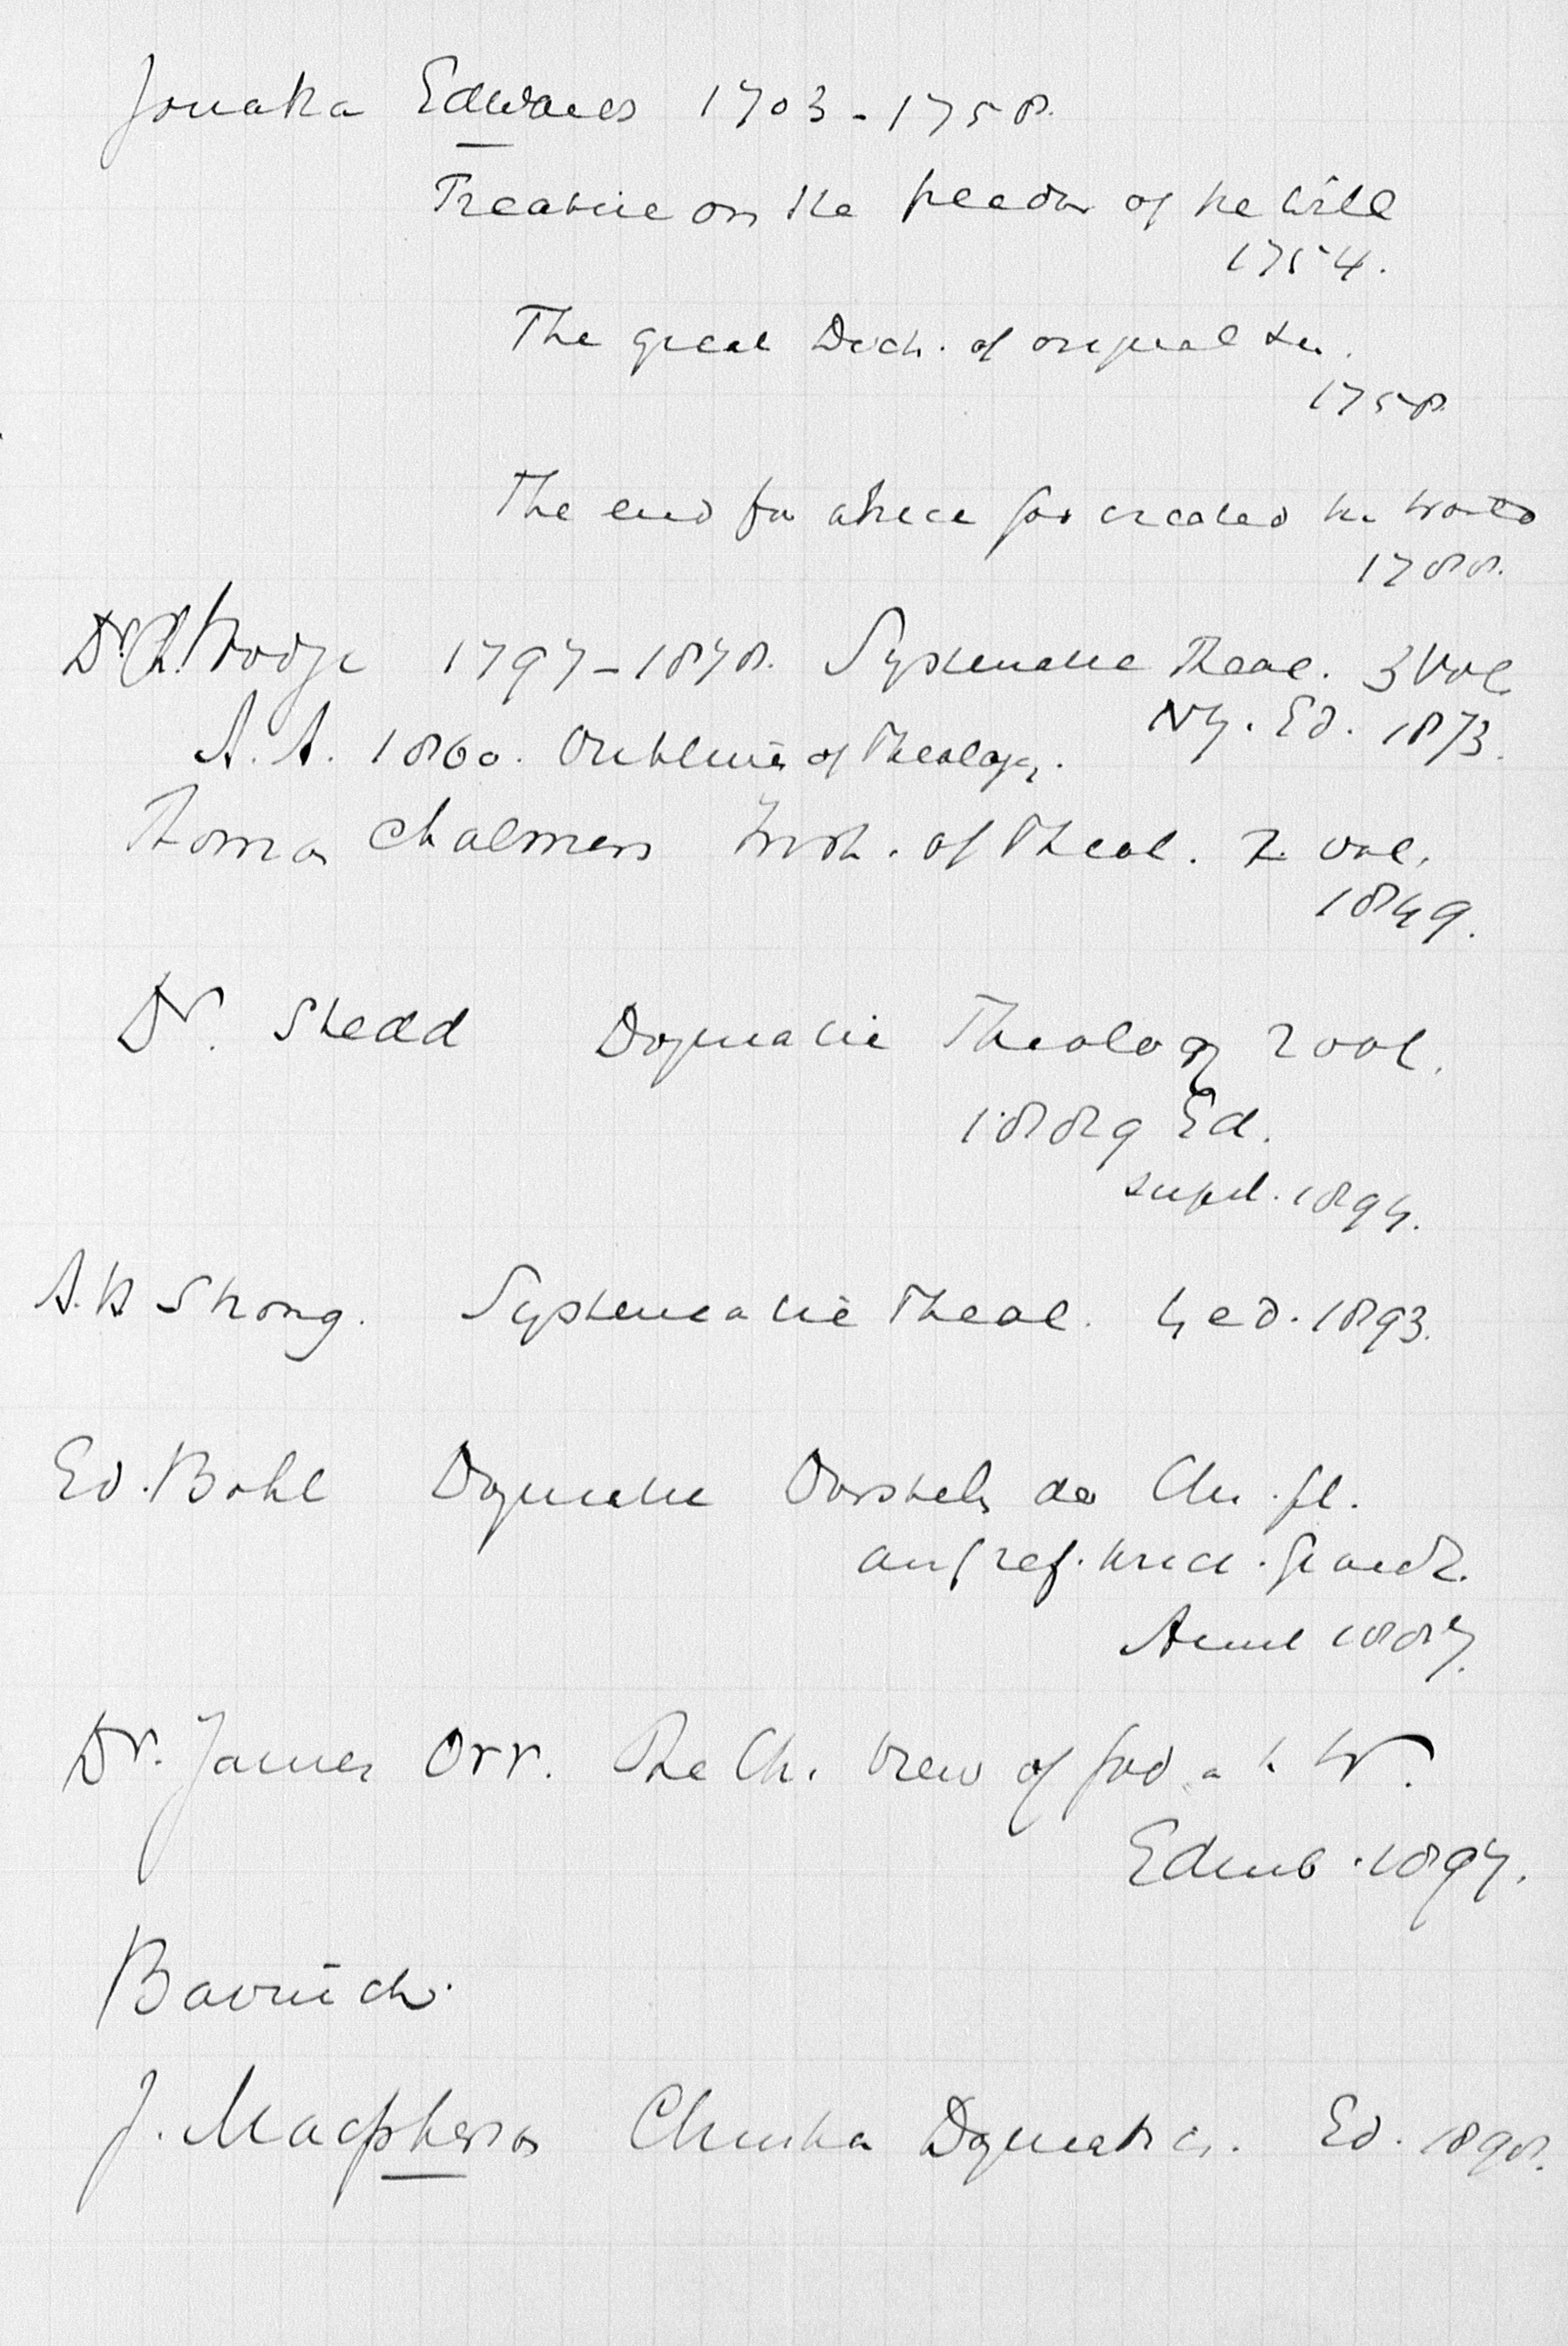 Jonatha Edwards 1703-1758.
Treatise on the freedom of the Will
1754.
The great Doct. of original sin.
1758
The end for which God created the world
1788.
Dr. Ch. Hodge 1797-1878. Systematic Theol. 3 Vol.
NY. Ed. 1873.
A. A. 1860. Outlines of Theology.
Thomas Chalmers Inst. of Theol. 2 vol.
1849.
Dr. Shedd Dogmatic Theology 2 vol.
1889 Ed.
suppl. 1894.
A. H Strong. Systematic Theol. 4 ed. 1893.
Ed. Böhl Dogmatik Darstell. der Chr. Gl.
auf ref. kirchl. Grundl.
Amst 1887.
Dr. James Orr. The Chr. View of God a. t. W.
Edinb. 1897.
Bavinck.
J. Macpherson Christian Dogmatics. Ed. 1898.